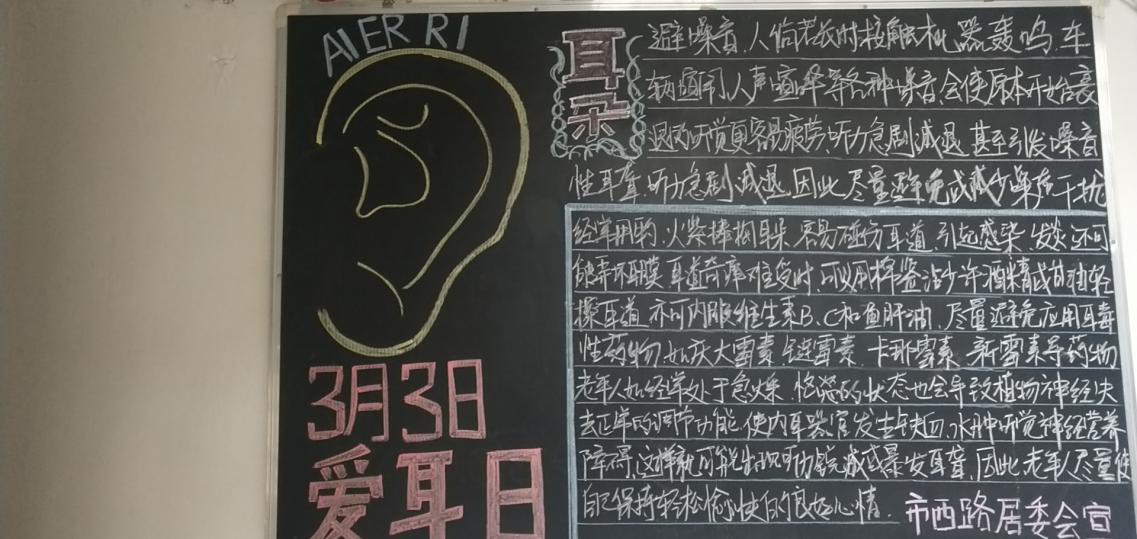 AI ER RI
3月3日
爱耳日
耳朵
避噪音.人们若长时接触机器轰鸣.车
辆喧闹人声喧哗等各种噪音.会使原本开始衰
退的听觉更容易疲劳.听力急剧减退.甚至引发噪音
性耳聋.听力急剧减退.因此.尽量避免或减少噪音干扰
经常用钩.火柴棒掏耳朵.容易碰伤耳道.引起感染.发炎.还可
能弄坏耳膜.耳道奇痒难受时.可以用棉签沾少许酒精或甘油轻
擦耳道.亦可内服维生素B.C和鱼肝油.尽量避免应用耳毒
性药物.如庆大霉素.链霉素.卡那霉素.新霉素等药物
老年人如经常处于急燥.恼怒的状态也会导致植物神经失
去正常的调节功能.使内耳器官发生缺血.水肿听觉神经营养
障碍.这样就可能出现听力锐减或暴发耳聋.因此.老年人尽量使
自己保持轻松愉快的良好心情.
市西路居委会宣